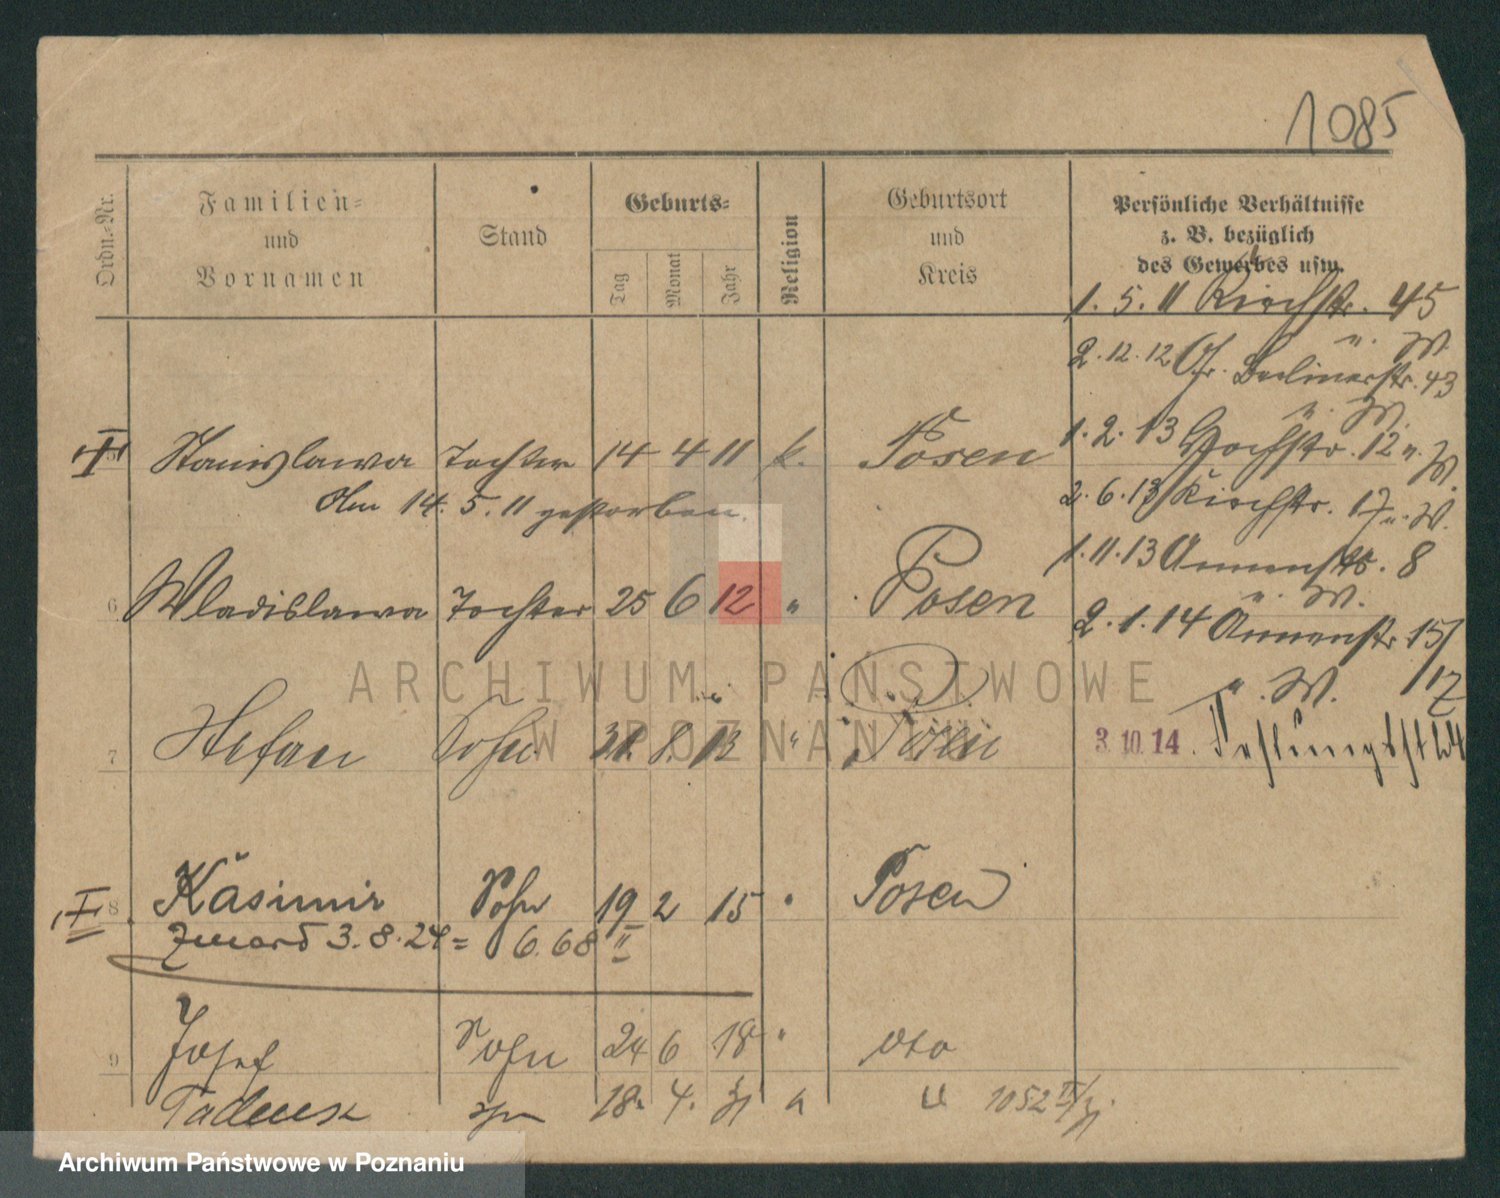 1085
Ordn.-Nr.
Familien-
und
Vornamen
Stand
Geburts-
Tag Monat Jahr
Religion
Geburtsort
und
Kreis
Persönliche Verhältnisse
z. B. bezüglich
des Gewerbes usw.
1. 5. 11 Kirchstr. 45
u. W.
2. 12. 12 Gr. Berlinerstr. 43
u. W.
1. 2. 13 Hochstr. 12 u. W.
2. 6. 13 Kirchstr. 17 u. W.
1. 11. 13 Annenstr. 8
u. W.
2. 1. 14 Annenstr. 15/
u. W. 17
3. 10. 14.
I Stanislawa Tochter 14 4 11 k. Posen
Am 14. 5. 11 gestorben.
6 Wladislawa Tochter 25 6 12 " Posen
7 Stefan Sohn 31. 8. 13 " Posen
I 8 Kasimir Sohn 19 2 15 " Posen
Zmarł 3. 8. 24 = 6. 68 II
9 Josef Sohn 24 6 18 " dto
Tadeusz syn 18. 4. 21 " " 1052 II/21
ARCHIWUM PAŃSTWOWE
W POZNANIU
Archiwum Państwowe w Poznaniu